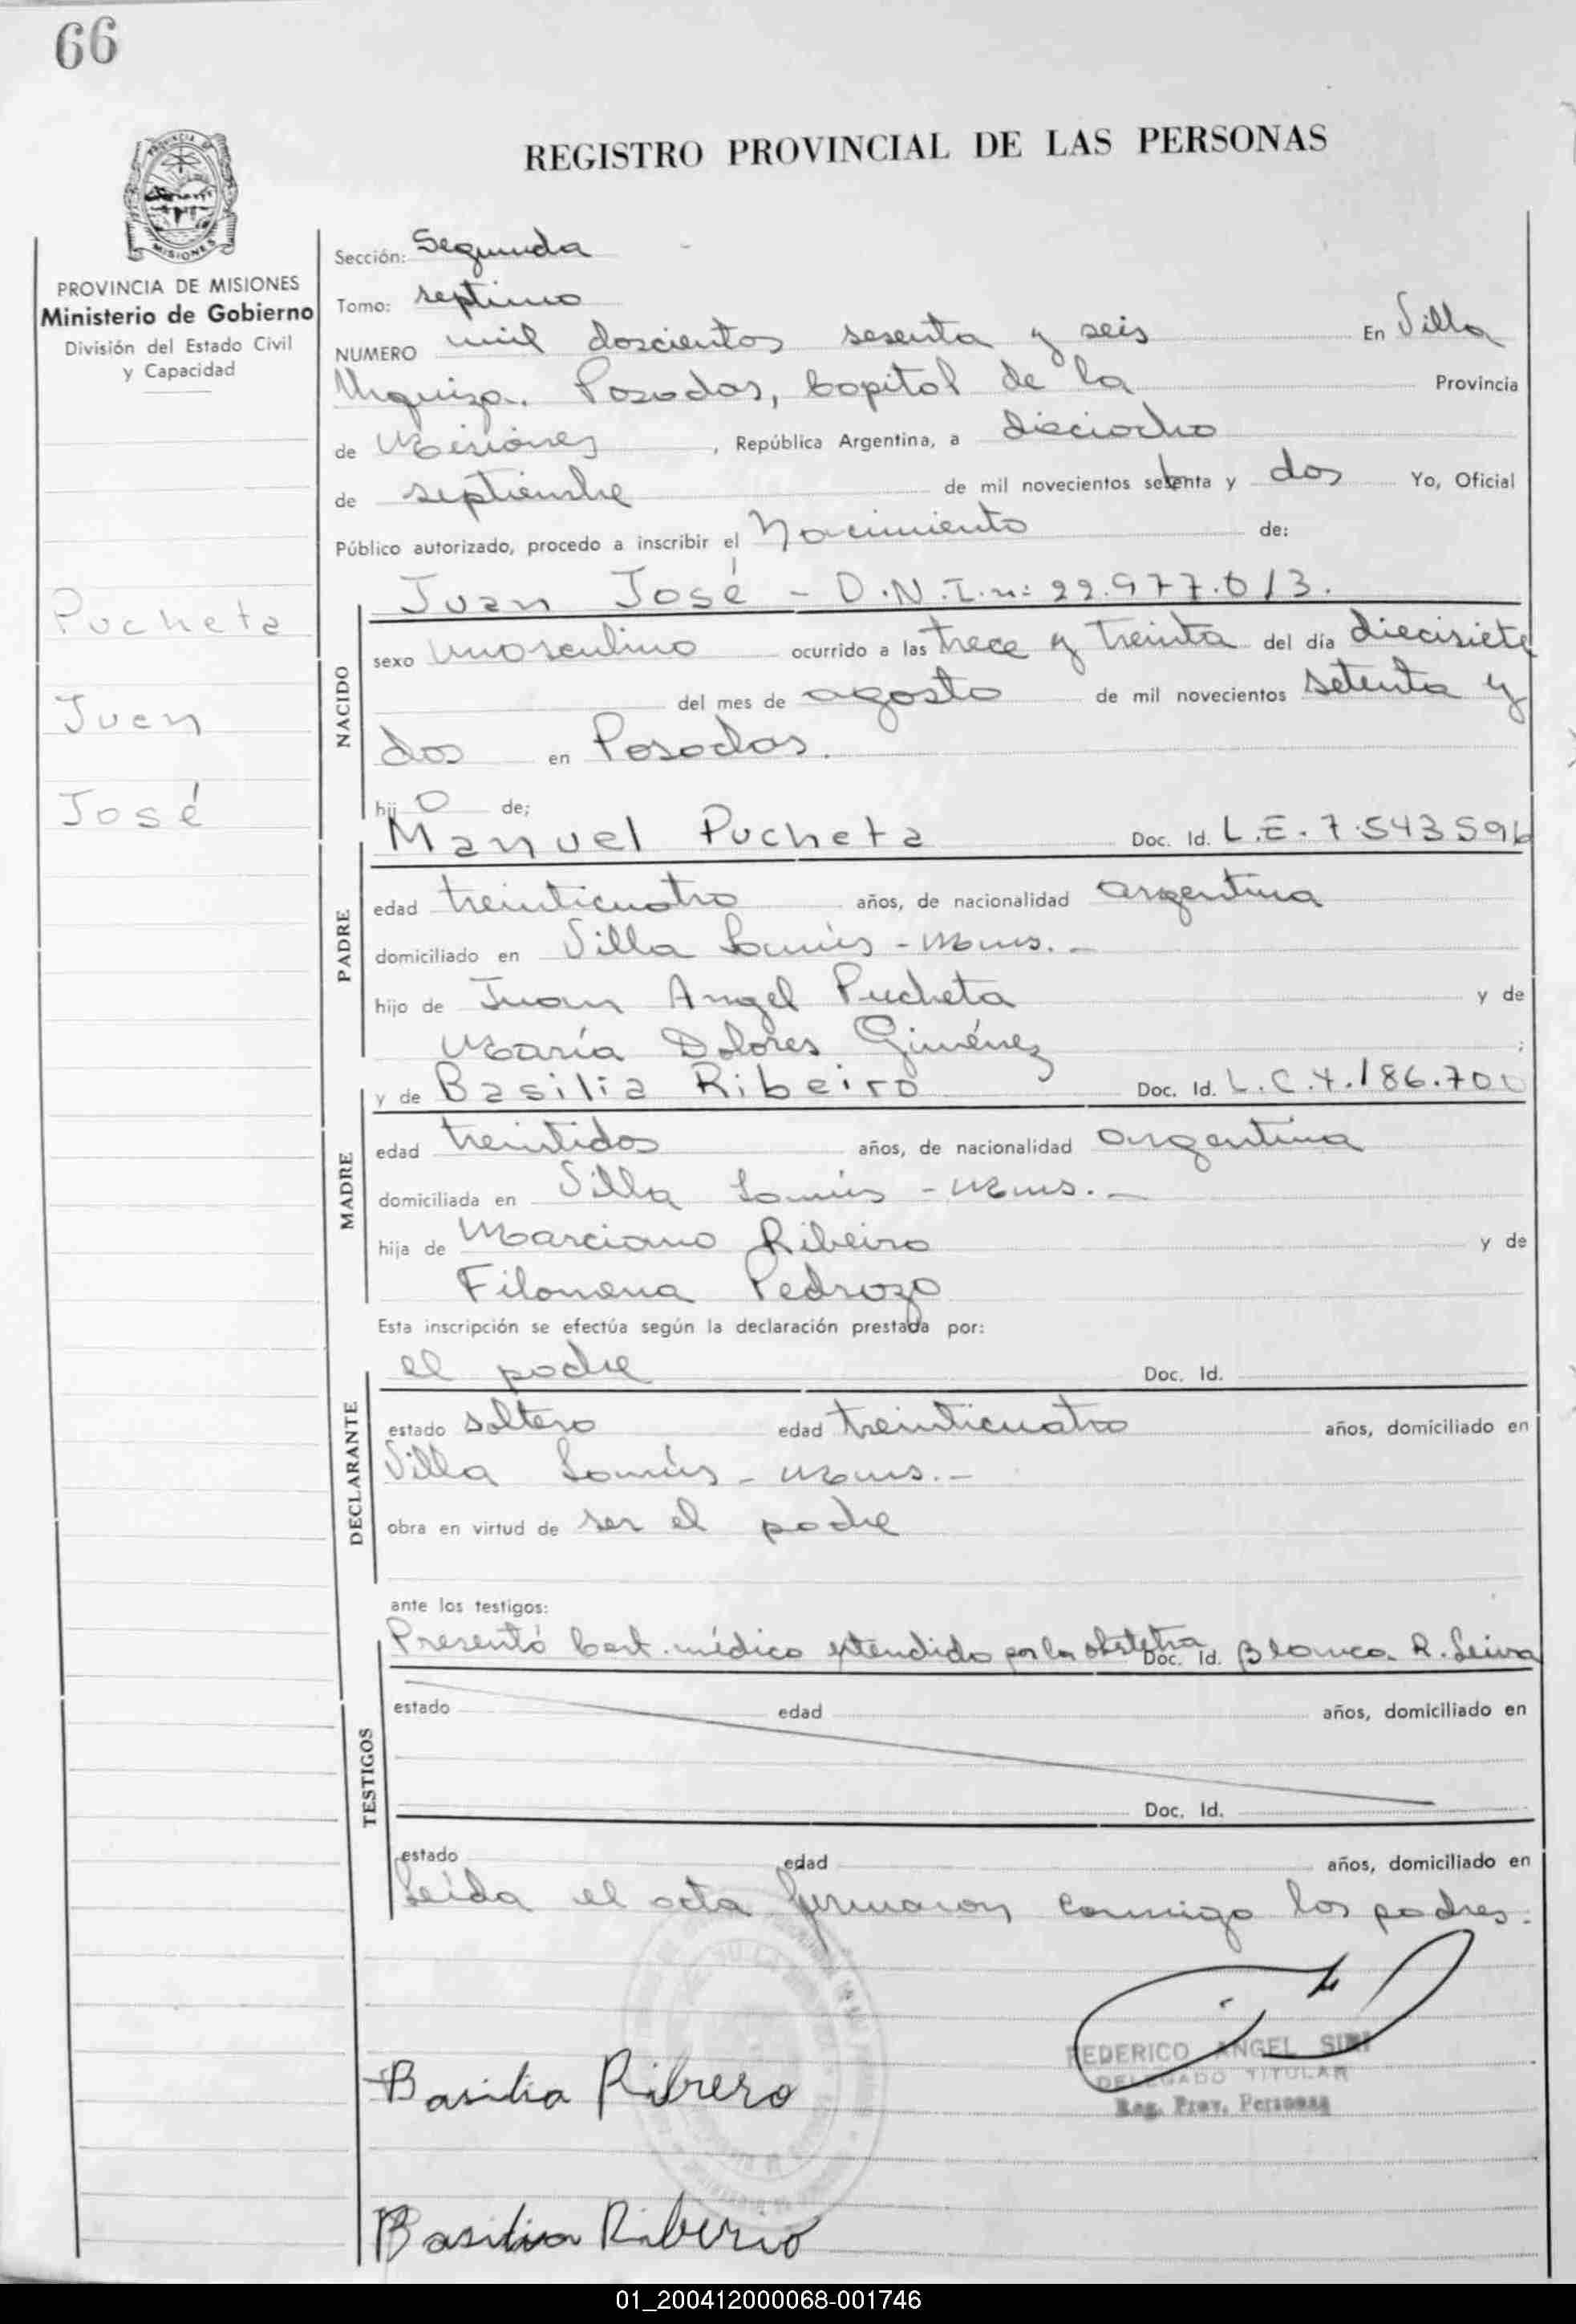 66
REGISTRO PROVINCIAL DE LAS PERSONAS
PROVINCIA DE MISIONES
Ministerio de Gobierno
División del Estado Civil
y Capacidad
Pucheta
Juan
José
Sección: Segunda
Tomo: septimo
NUMERO mil doscientos sesenta y seis En Villa
Urquiza. Posadas, Capital de la Provincia
de Misiones, República Argentina, a dieciocho
de septiembre de mil novecientos setenta y dos Yo, Oficial
Público autorizado, procedo a inscribir el Nacimiento de:
Juan José - D.N.I.n: 22.977.013.
NACIDO
sexo masculino ocurrido a las trece y treinta del día diecisiete
del mes de agosto de mil novecientos setenta y
dos en Posadas.
hijo de;
Manuel Pucheta Doc. Id. L.E. 7.543596
PADRE
edad treinticuatro años, de nacionalidad argentina
domiciliado en Villa Lanús - Mnes.-
hijo de Juan Angel Pucheta y de
María Dolores Giménez ;
y de Basilia Ribeiro Doc. Id. L.C.4.186.700
MADRE
edad treintidos años, de nacionalidad argentina
domiciliada en Villa Lanús - Mnes.-
hija de Marciano Ribeiro y de
Filomena Pedrozo
Esta inscripción se efectúa según la declaración prestada por:
el padre Doc. Id.
DECLARANTE
estado soltero edad treinticuatro años, domiciliado en
Villa Lanús - Mnes.-
obra en virtud de ser el padre
ante los testigos:
Presentó Cert. médico extendido por la obstetra Doc. Id. Blanca R. Leiva
TESTIGOS
estado edad años, domiciliado en
Doc. Id.
estado edad años, domiciliado en
Leída el acta firmaron conmigo los padres.
FEDERICO ANGEL SIRI
DELEGADO TITULAR
Reg. Prov. Personas
Basilia Ribrero
Basilia Riberio
01_200412000068-001746